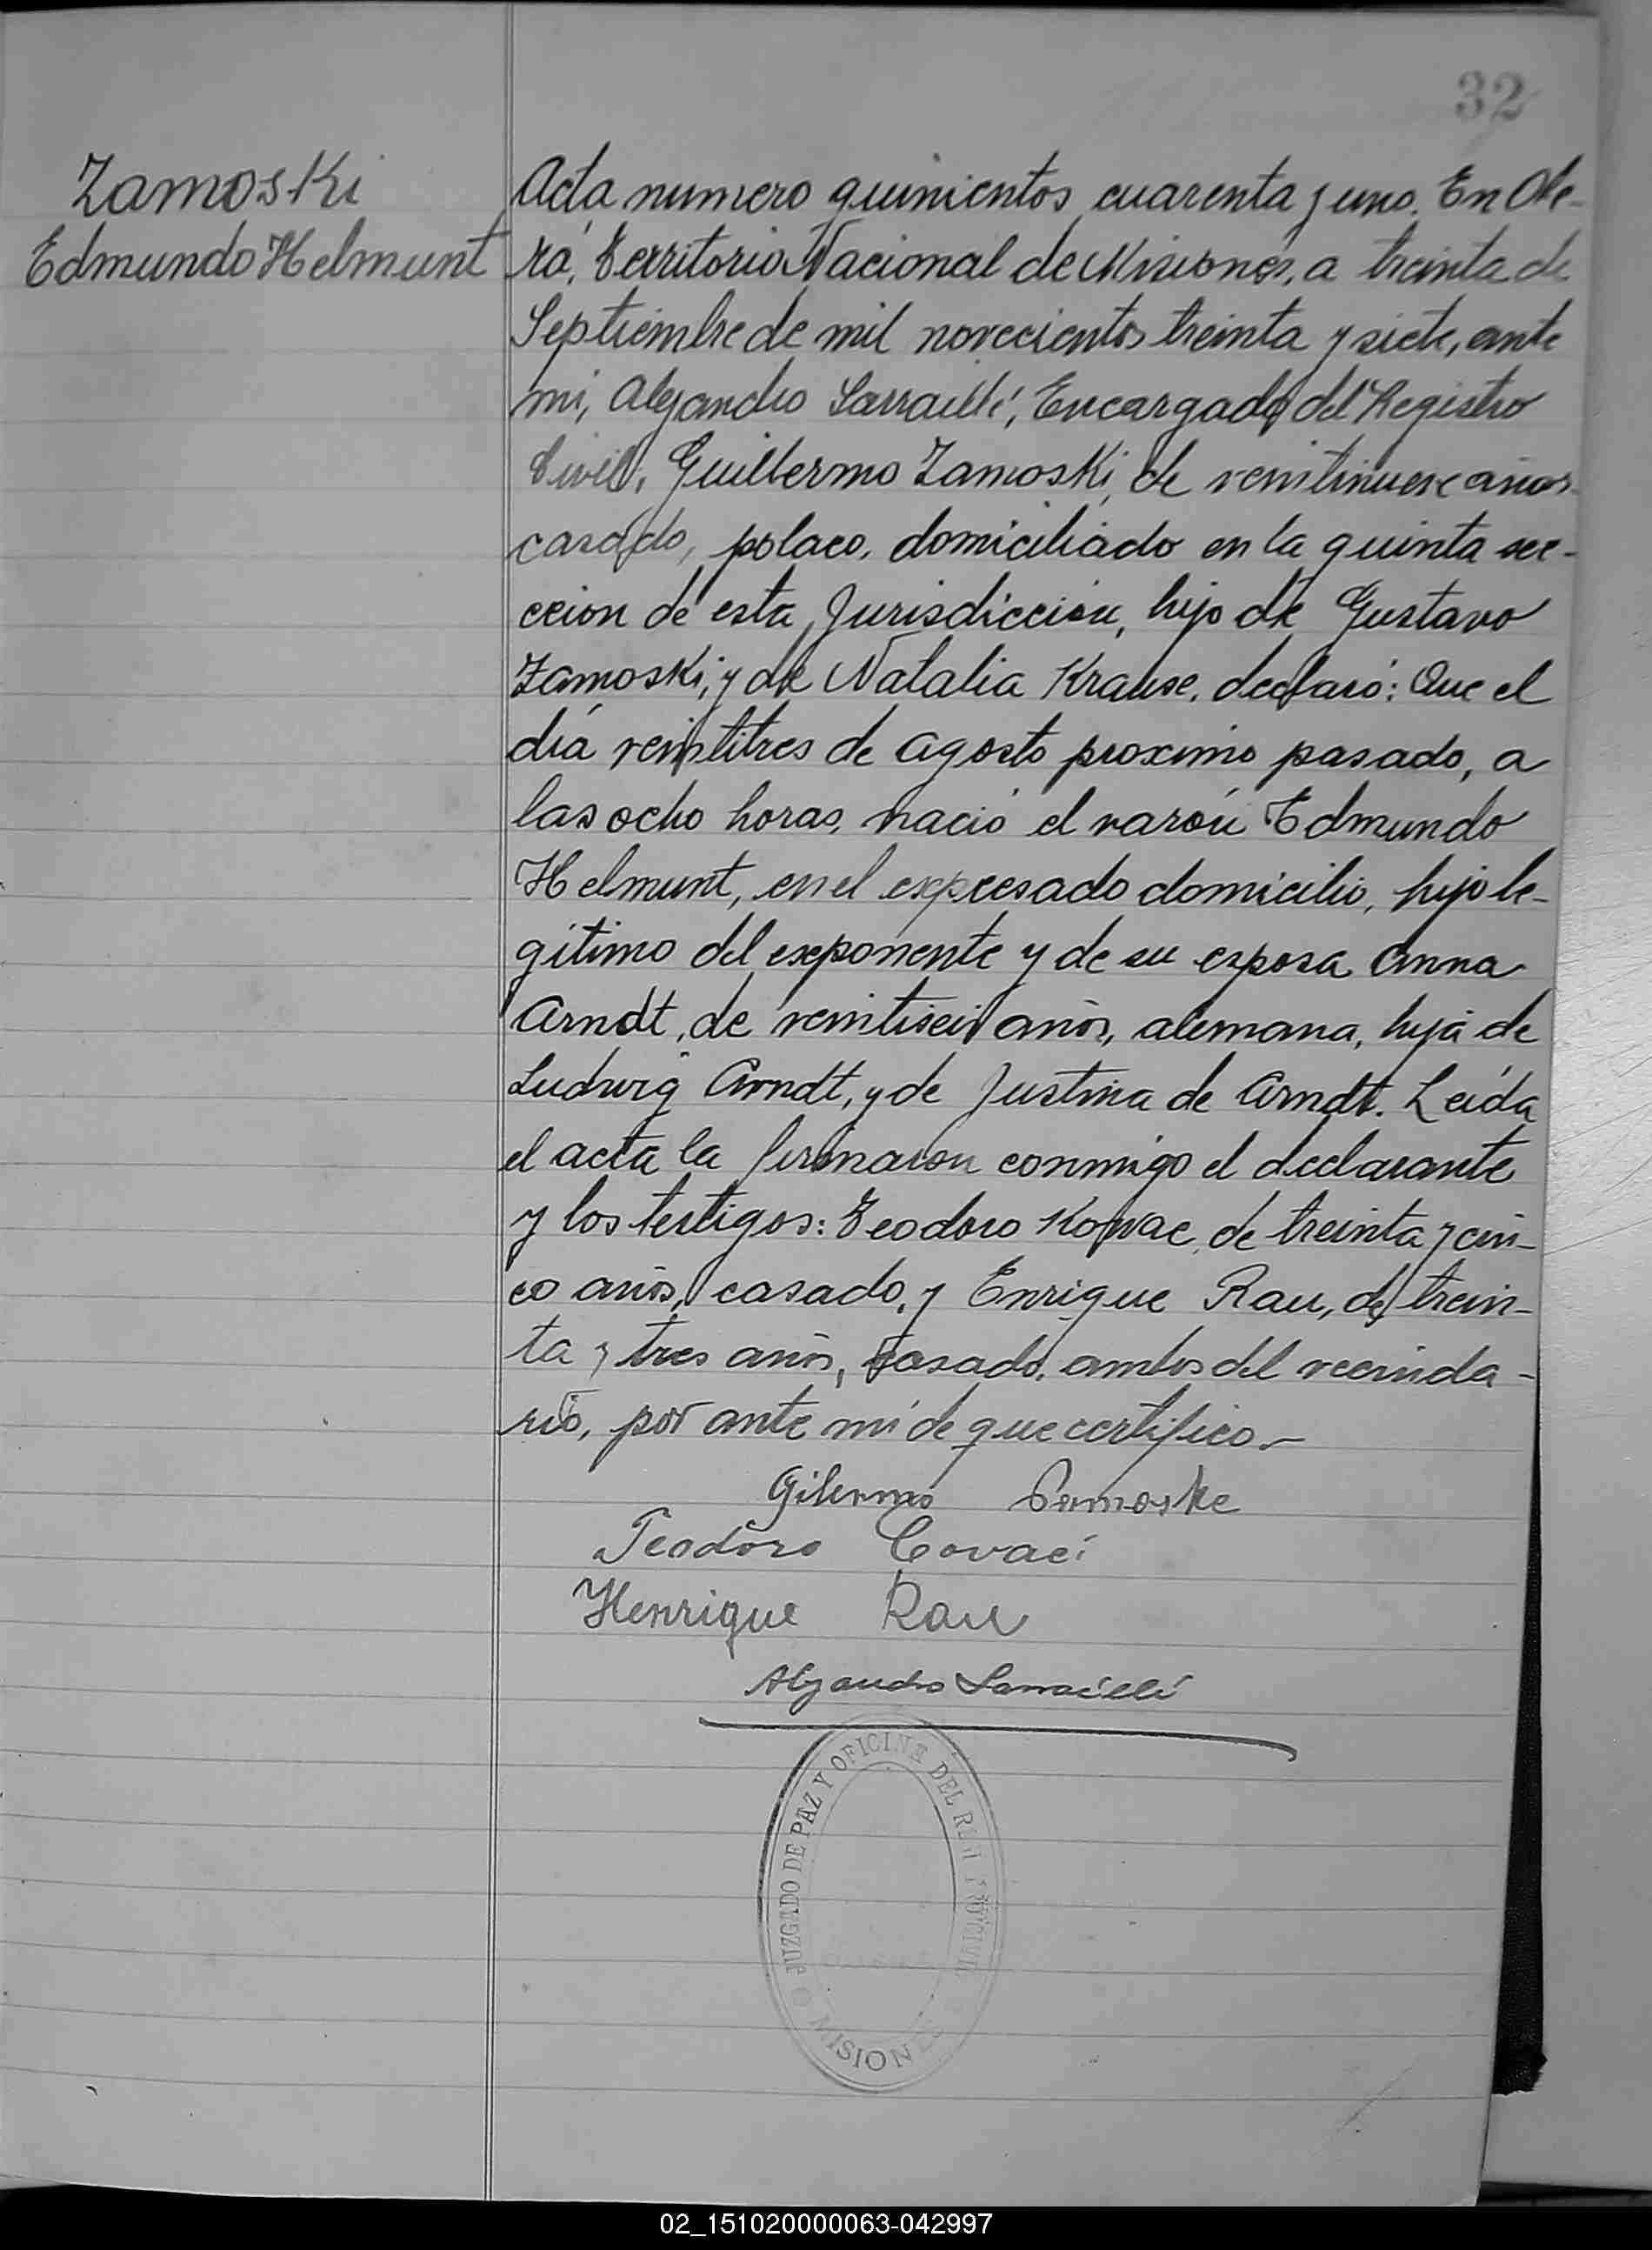 32
Zamoski
Edmundo Helmunt
Acta numero quinientos cuarenta y uno. En Obe-
rá, Territorio Nacional de Misiones, a treinta de
Septiembre de mil novecientos treinta y siete, ante
mi, Alejandro Sarraillé, Encargado del Registro
Civil, Guillermo Zamoski, de veintinueve años
casado, polaco, domiciliado en la quinta sec-
ccion de esta Jurisdicción, hijo de Gustavo
Zamoski, y de Natalia Krause, declaró: Que el
día veintitres de agosto proximo pasado, a
las ocho horas, nació el varón Edmundo
Helmunt, en el expresado domicilio, hijo le-
gítimo del exponente y de su esposa Anna
Arndt, de veintiseis años, alemana, hija de
Ludwig Arndt, y de Justina de Arndt. Leída
el acta la firmaron conmigo el declarante
y los testigos: Teodoro Kowac, de treinta y cin-
co años, casado, y Enrique Rau, de trein-
ta y tres años, casado, ambos del vecinda-
rio, por ante mi de que certifico.-
Gilermo Samoske
Teodoro Covaci
Henrique Rau
Alejandro Sarraillé
JUZGADO DE PAZ Y OFICINA DEL CIVIL
MISIONES
02_151020000063-042997